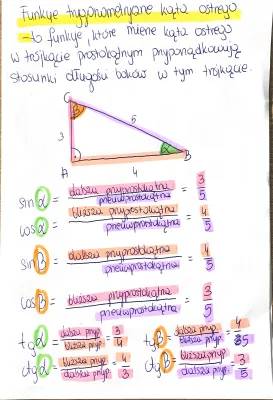 Funkcje trygonometryczne kąta ostrego
- to funkcje, które mierze kąta ostrego
w trójkącie prostokątnym przyporządkowują
stosunki długości boków w tym trójkącie.
C
3
5
A
4
B
sin α = dalsza przyprostokątna / przeciwprostokątna = 3/5
cos α = bliższa przyprostokątna / przeciwprostokątna = 4/5
sin β = dalsza przyprostokątna / przeciwprostokątna = 4/5
cos β = bliższa przyprostokątna / przeciwprostokątna = 3/5
tg α = dalsza przyp. / bliższa przyp. = 3/4
tg β = dalsza przyp. / bliższa przyp. = 4/
ctg α = bliższa przyp. / dalsza przyp. = 4/3
ctg β = bliższa przyp. / dalsza przyp. = 3/